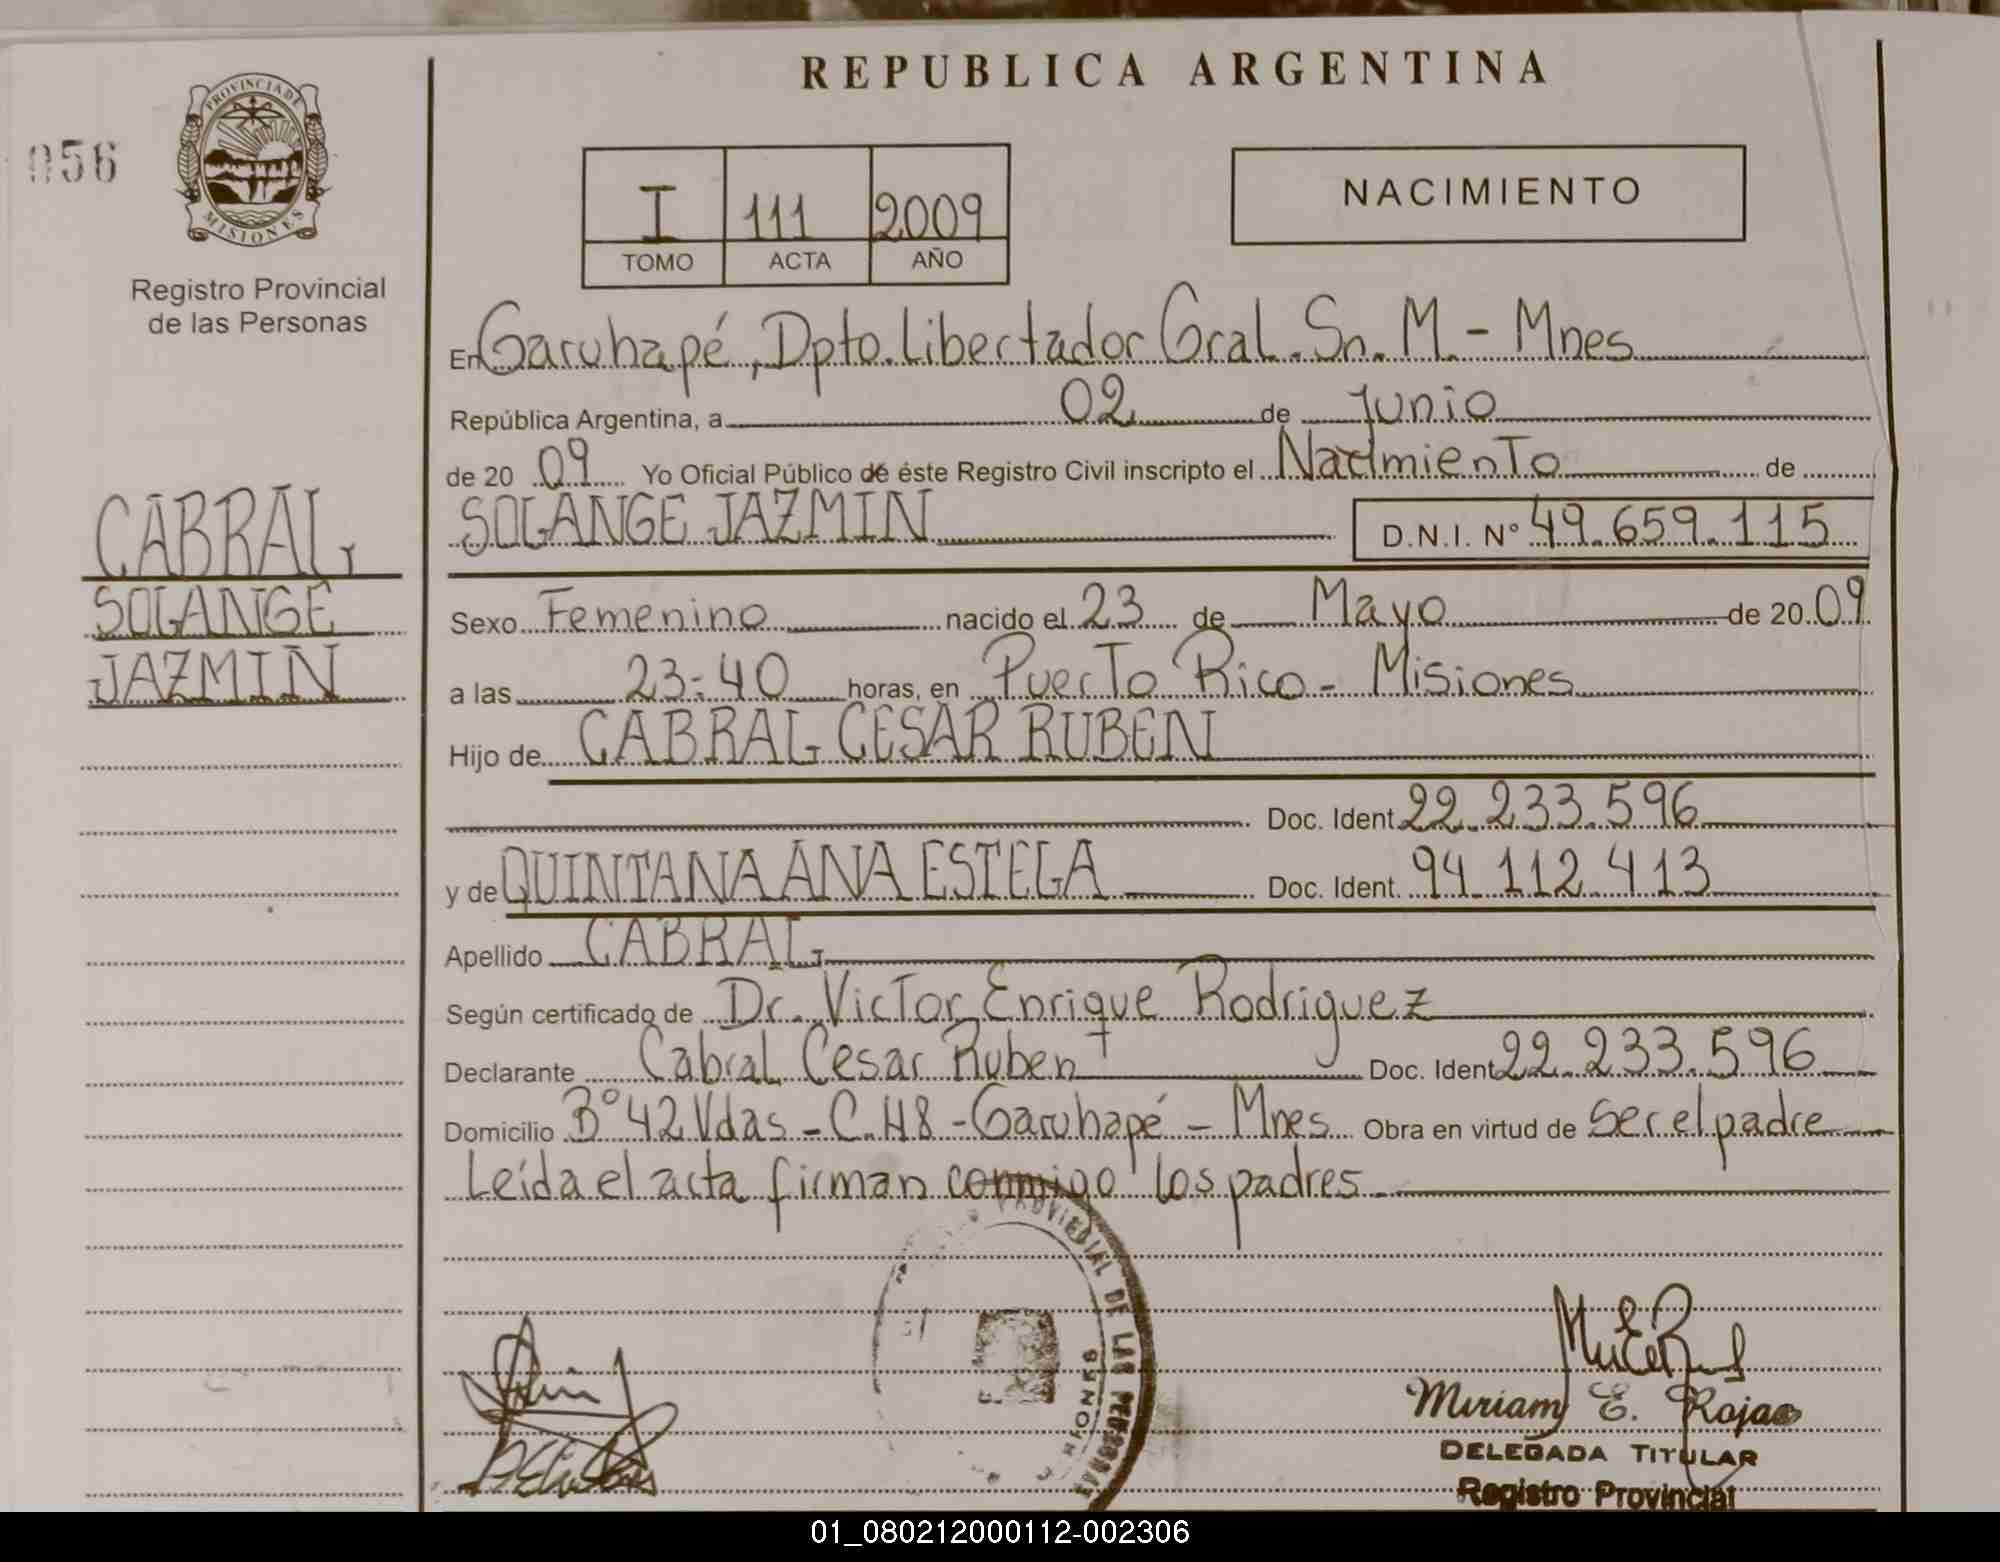 REPUBLICA ARGENTINA
056
PROVINCIA DE
MISIONES
Registro Provincial
de las Personas
I 111 2009
TOMO ACTA AÑO
NACIMIENTO
En Garuhapé, Dpto. Libertador Gral. Sn. M. - Mnes
República Argentina, a 02 de Junio
de 20 09 Yo Oficial Público de éste Registro Civil inscripto el Nacimiento de
SOLANGE JAZMIN D.N.I. Nº 49.659.115
CABRAL
SOLANGE
JAZMIN
Sexo Femenino nacido el 23 de Mayo de 20 09
a las 23:40 horas, en Puerto Rico - Misiones
Hijo de CABRAL CESAR RUBEN
Doc. Ident. 22.233.596
y de QUINTANA ANA ESTELA Doc. Ident. 94.112.413
Apellido CABRAL
Según certificado de Dr. Victor Enrique Rodriguez
Declarante Cabral Cesar Ruben Doc. Ident. 22.233.596
Domicilio Bº 42 Vdas - C.H8 - Garuhapé - Mnes Obra en virtud de ser el padre
Leída el acta firman conmigo los padres
PROVINCIAL DE LAS PERSONAS
Miriam E. Rojas
DELEGADA TITULAR
Registro Provincial
01_080212000112-002306